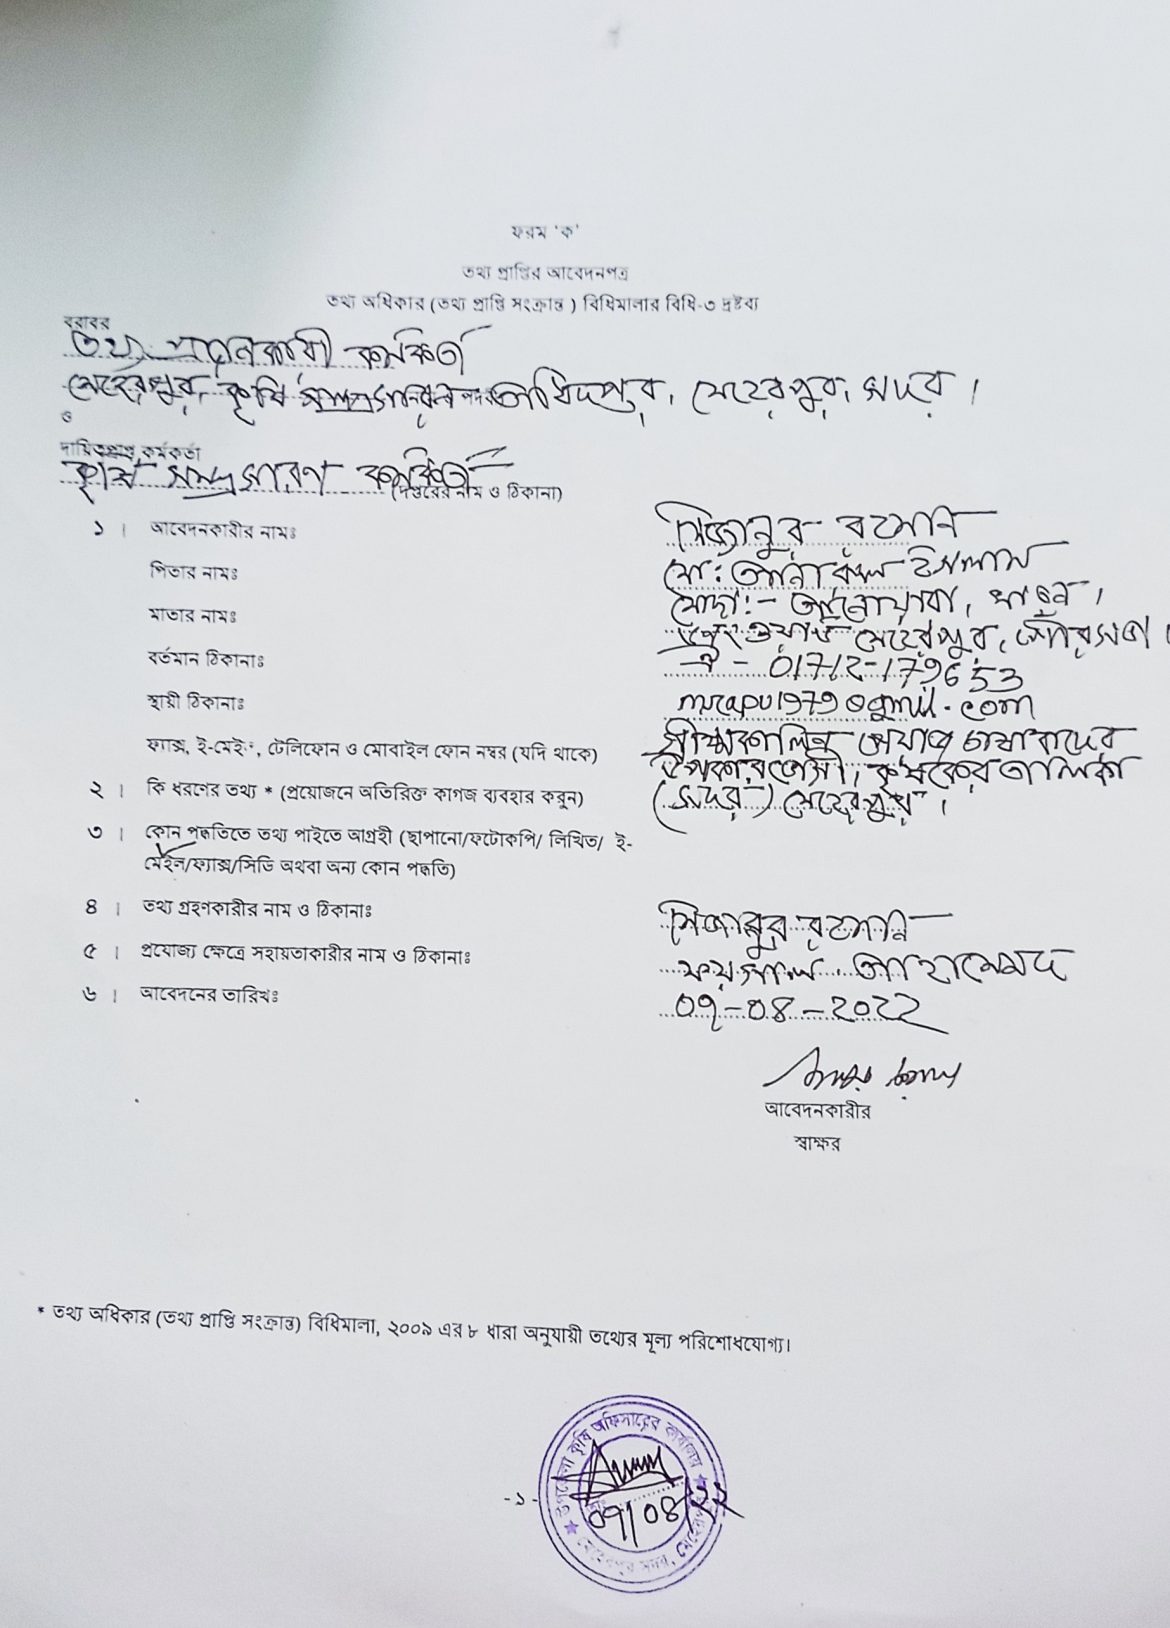 ফরম 'ক'
তথ্য প্রাপ্তির আবেদনপত্র
তথ্য অধিকার (তথ্য প্রাপ্তি সংক্রান্ত ) বিধিমালার বিধি-৩ দ্রষ্টব্য
বরাবর
তথ্য প্রদানকারী কর্মকর্তা
মেহেরপুর, কৃষি সম্প্রসারণ অধিদপ্তুর, মেহেরপুর, সদর।
ও
দায়িত্বপ্রাপ্ত কর্মকর্তা
কৃষি সম্প্রসারণ কর্মকর্তা
(দপ্তরের নাম ও ঠিকানা)
১ । আবেদনকারীর নামঃ মিজানুর রহমান
পিতার নামঃ মো: ইসলাম
মাতার নামঃ মোছা:- আনোয়ারা, খাতুন।
বর্তমান ঠিকানাঃ ওয়ার্ড মেহেরপুর, পৌরসভা।
স্থায়ী ঠিকানাঃ ঐ - 01712-179653
ফ্যাক্স, ই-মেইল, টেলিফোন ও মোবাইল ফোন নম্বর (যদি থাকে)
২ । কি ধরণের তথ্য * (প্রয়োজনে অতিরিক্ত কাগজ ব্যবহার করুন) গ্রীষ্মকালিন পেয়াজ চাষাবাদের
উপকারভোগী, কৃষকের তালিকা
(সদর) মেহেরপুর।
৩ । কোন পদ্ধতিতে তথ্য পাইতে আগ্রহী (ছাপানো/ফটোকপি/ লিখিত/ ই-
মেইল/ফ্যাক্স/সিডি অথবা অন্য কোন পদ্ধতি)
৪ । তথ্য গ্রহণকারীর নাম ও ঠিকানাঃ মিজানুর রহমান
৫ । প্রযোজ্য ক্ষেত্রে সহায়তাকারীর নাম ও ঠিকানাঃ ফয়সাল আহাম্মেদ
৬ । আবেদনের তারিখঃ ০৭-০৪-২০২২
আবেদনকারীর
স্বাক্ষর
* তথ্য অধিকার (তথ্য প্রাপ্তি সংক্রান্ত) বিধিমালা, ২০০৯ এর ৮ ধারা অনুযায়ী তথ্যের মূল্য পরিশোধযোগ্য।
উপজেলা কৃষি অফিসারের কার্যালয়
- ১ -
০৭/০৪/২২
মেহেরপুর সদর, মেহেরপুর